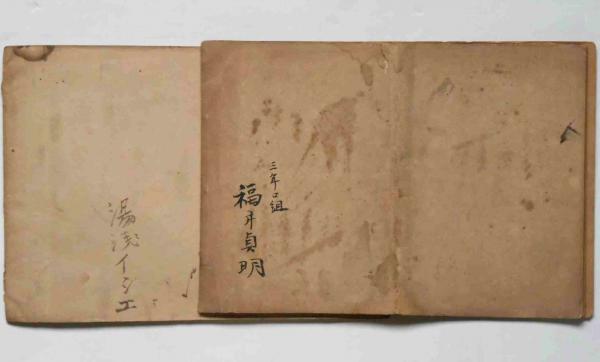 三年ロ組
福井貞明
湯浅イシエ